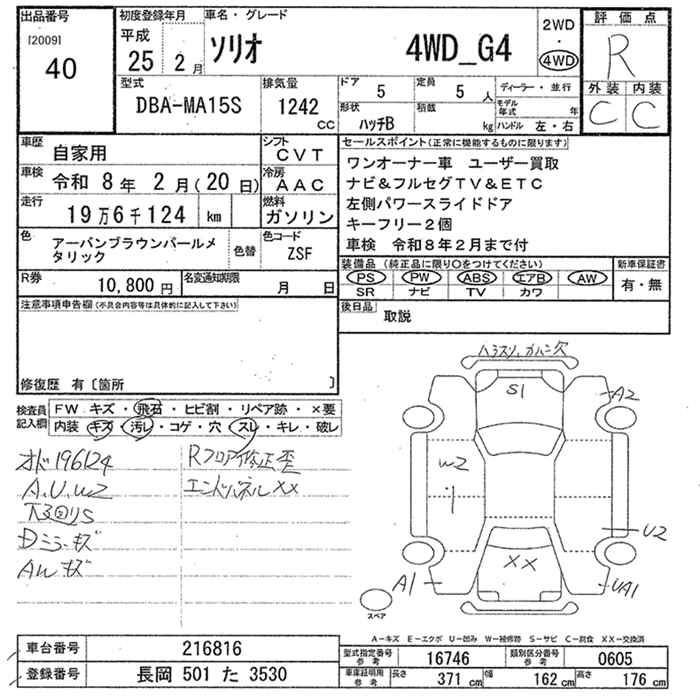 出品番号
[2009]
40
初度登録年月
平成
25 2月
車名・グレード
ソリオ 4WD_G4
2WD
・
4WD
評価点
R
外装 内装
C C
型式
DBA-MA15S
排気量
1242 cc
ドア 5
定員 5 人
形状 ハッチB
積載 kg
ディーラー・並行
モデル年式 年
ハンドル 左・右
車歴 自家用
シフト CVT
車検 令和 8年 2月(20日)
冷房 AAC
走行 19万6千124 km
燃料 ガソリン
色 アーバンブラウンパールメタリック
色替
色コード ZSF
R券 10,800円
名変通知期限 月 日
セールスポイント(正常に機能するものに限ります)
ワンオーナー車 ユーザー買取
ナビ&フルセグTV&ETC
左側パワースライドドア
キーフリー2個
車検 令和8年2月まで付
装備品(純正品に限り○をつけてください)
新車保証書
PS PW ABS エアB AW
SR ナビ TV カワ
有・無
後日品 取説
注意事項申告欄(不具合内容等は具体的に記入して下さい)
修復歴 有〔箇所 〕
検査員記入欄
FW キズ・飛石・ヒビ割・リペア跡・×要
内装 キズ・汚レ・コゲ・穴・スレ・キレ・破レ
オド196124
A.U.W2
下回りS
Dミラーキズ
AWキズ
Rフロア修正歪
エンドパネルXX
S1
A2
W2
U2
XX
A1
UA1
スペア
A-キズ E-エクボ U-凹み W-補修跡 S-サビ C-腐食 XX-交換済
車台番号 216816
登録番号 長岡 501 た 3530
型式指定番号参考 16746
類別区分番号参考 0605
車庫証明用参考
長さ 371 cm
幅 162 cm
高さ 176 cm